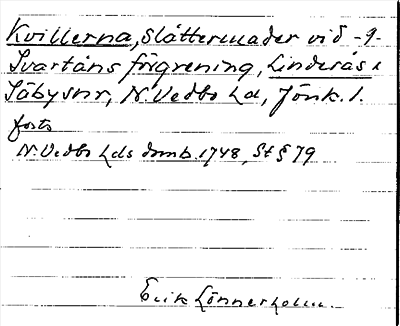 Kvillerna, Slåttermader vid -g-
Svartåns förgrening, Linderås i
Säbysnr, N. Vedbo hd, Jönk. l.
forts
N. Vedbo hds domb. 1748, St § 79
Erik Lönnerholm.